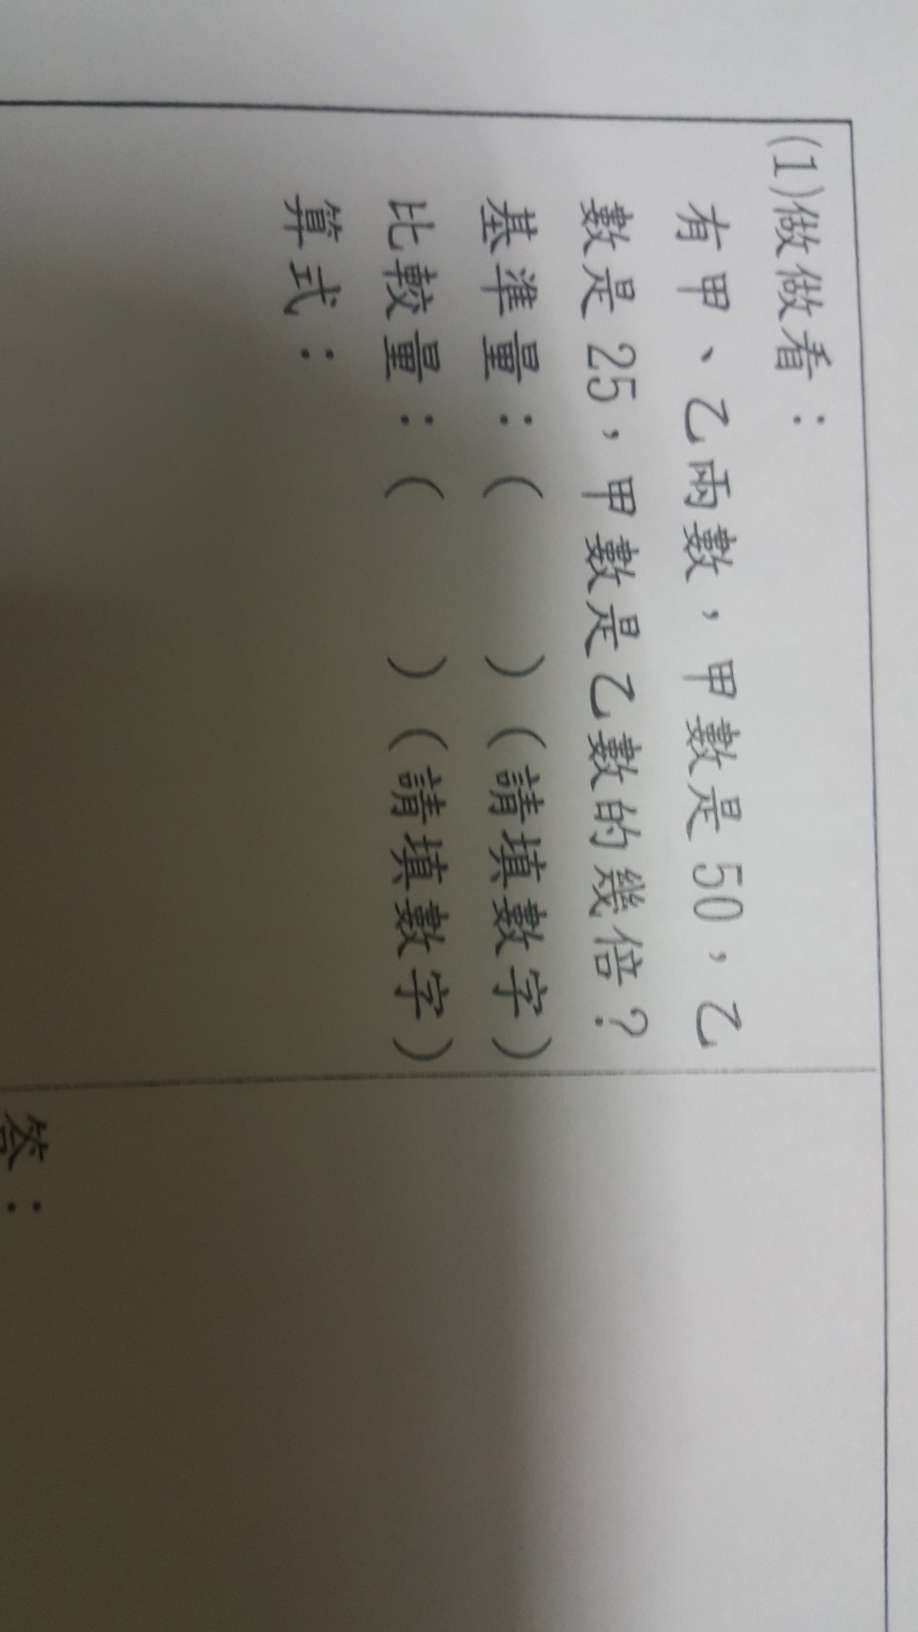 (1)做做看：
有甲、乙兩數，甲數是50，乙
數是25，甲數是乙數的幾倍？
基準量：(　　)(請填數字)
比較量：(　　)(請填數字)
算式：
答：